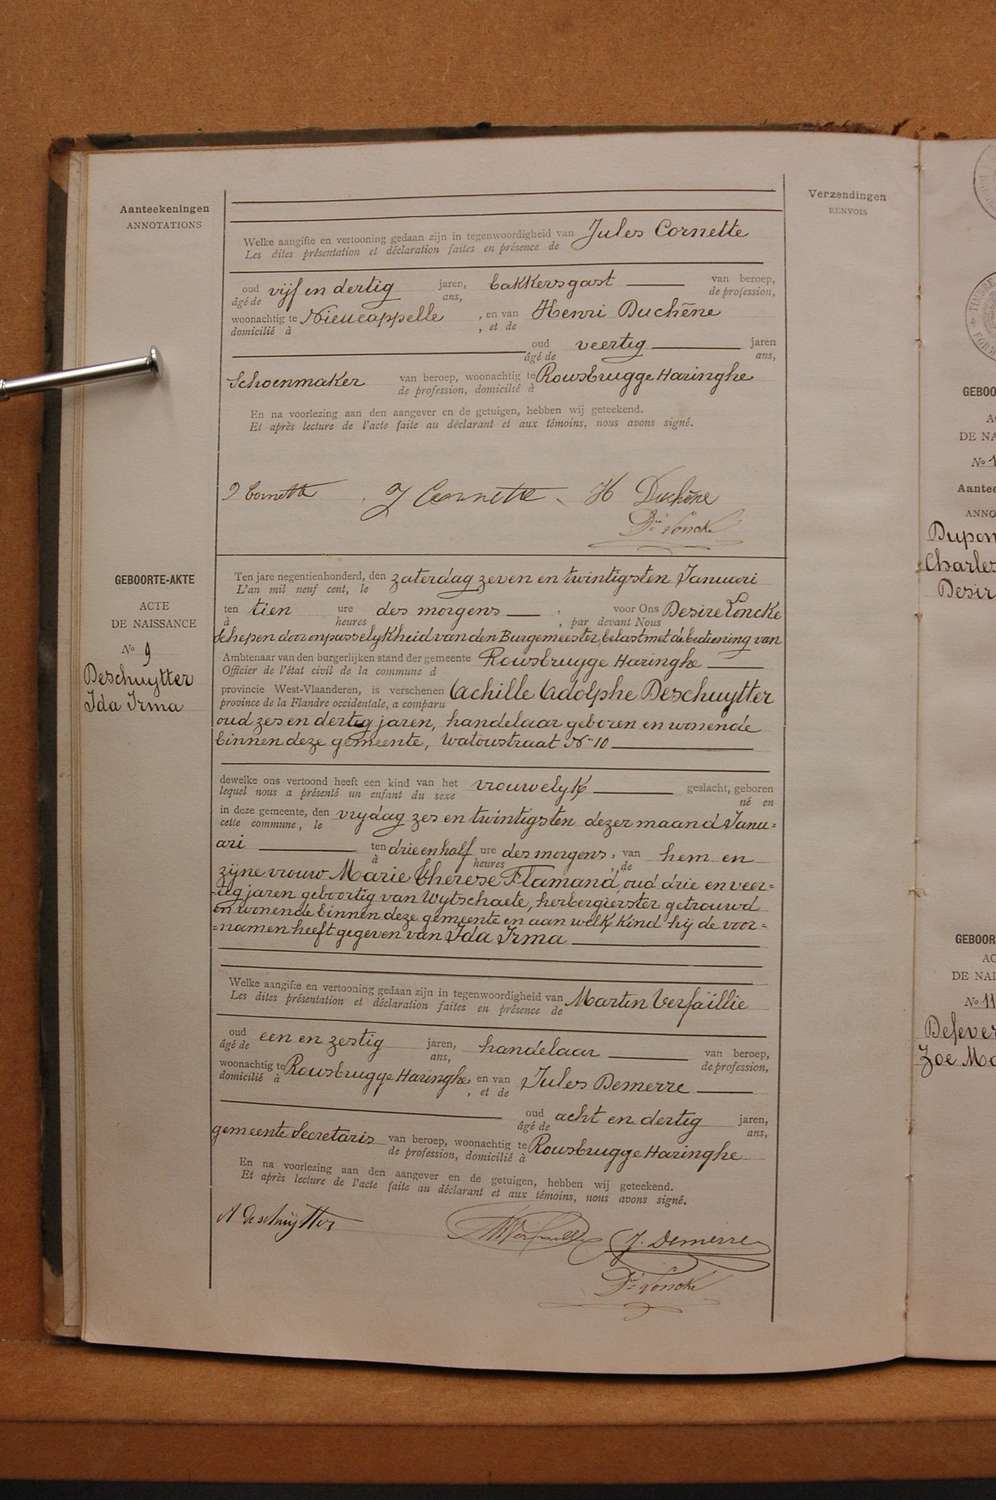 Aanteekeningen
ANNOTATIONS
Verzendingen
RENVOIS
Welke aangifte en vertooning gedaan zijn in tegenwoordigheid van Jules Cornette
Les dites présentation et déclaration faites en présence de
oud vijf en dertig jaren, bakkersgast van beroep,
âgé de ans, de profession,
woonachtig te Nieucappelle , en van Henri Duchêne
domicilié à , et de
oud veertig jaren
âgé de ans,
Schoenmaker van beroep, woonachtig te Rousbrugge Haringhe
de profession, domicilié à
En na voorlezing aan den aangever en de getuigen, hebben wij geteekend.
Et après lecture de l'acte faite au déclarant et aux témoins, nous avons signé.
Cornette J Cornette H Duchêne
Dré Lonck
GEBOORTE-AKTE
ACTE
DE NAISSANCE
No 9
Deschuytter
Ida Irma
Ten jare negentienhonderd, den zaterdag zeven en twintigsten Januari
L'an mil neuf cent, le
ten tien ure des morgens , voor Ons Desiré Loncke
à heures , par devant Nous
Schepen door onpasselykheid van den Burgemeester, belast met de bediening van
Ambtenaar van den burgerlijken stand der gemeente Rousbrugge Haringhe
Officier de l'état civil de la commune d
provincie West-Vlaanderen, is verschenen Achille Adolphe Deschuytter
province de la Flandre occidentale, a comparu
oud zes en dertig jaren, handelaar geboren en wonende
binnen deze gemeente, Watoustraat No 10
dewelke ons vertoond heeft een kind van het vrouwelyk geslacht, geboren
lequel nous a présenté un enfant du sexe né en
in deze gemeente, den vrydag zes en twintigsten dezer maand Janu-
cette commune, le
ari ten drie en half ure des morgens, van hem en
à heures , de
zijne vrouw Marie Therese Flamand, oud drie en veer-
tig jaren geboortig van Wytschaete, herbergierster getrouwd
en wonende binnen deze gemeente en aan welk kind hij de voor-
namen heeft gegeven van Ida Irma
Welke aangifte en vertooning gedaan zijn in tegenwoordigheid van Martin Verfaillie
Les dites présentation et déclaration faites en présence de
oud een en zestig jaren, handelaar van beroep,
âgé de ans, de profession,
woonachtig te Rousbrugge Haringhe en van Jules Demerre
domicilié à , et de
oud acht en dertig jaren,
âgé de ans,
gemeente Secretaris van beroep, woonachtig te Rousbrugge Haringhe
de profession, domicilié à
En na voorlezing aan den aangever en de getuigen, hebben wij geteekend.
Et après lecture de l'acte faite au déclarant et aux témoins, nous avons signé.
A Deschuytter J. Demerre
GEBOOR
AC
DE NA
No 1
Aantee
ANNO
Dupon
Charles
Desir
GEBOOR
AC
DE NAI
No 11
Defever
Zoe Ma